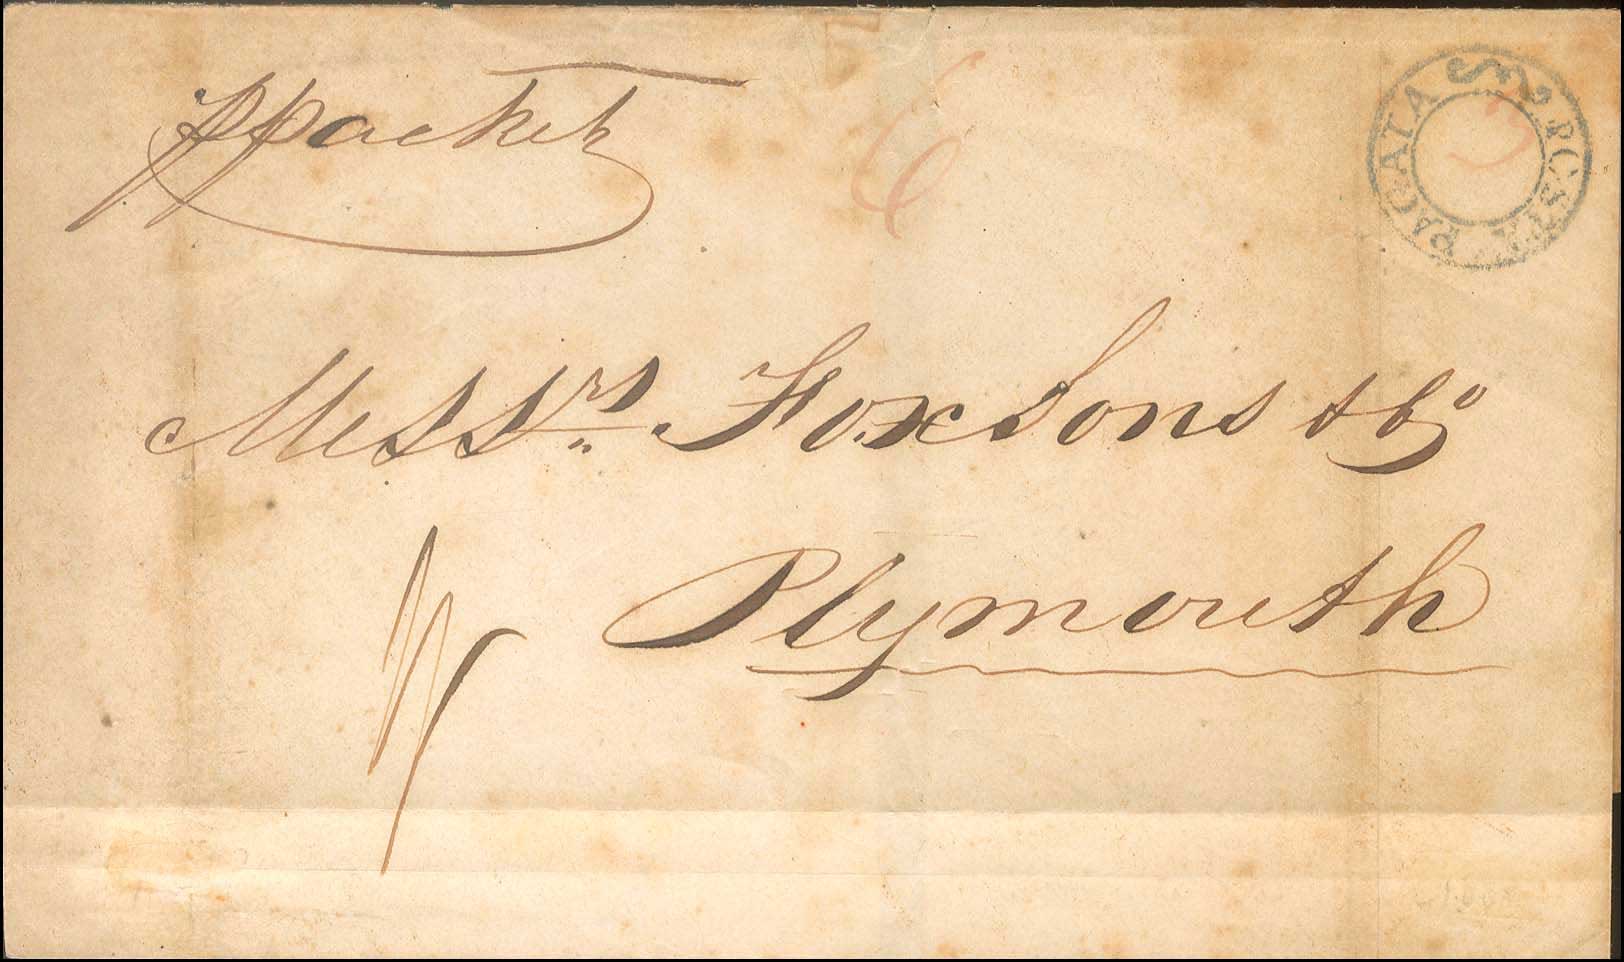 p packet
6
PAGATA POSTA
3
Messrs. Fox Sons & Co
Plymouth